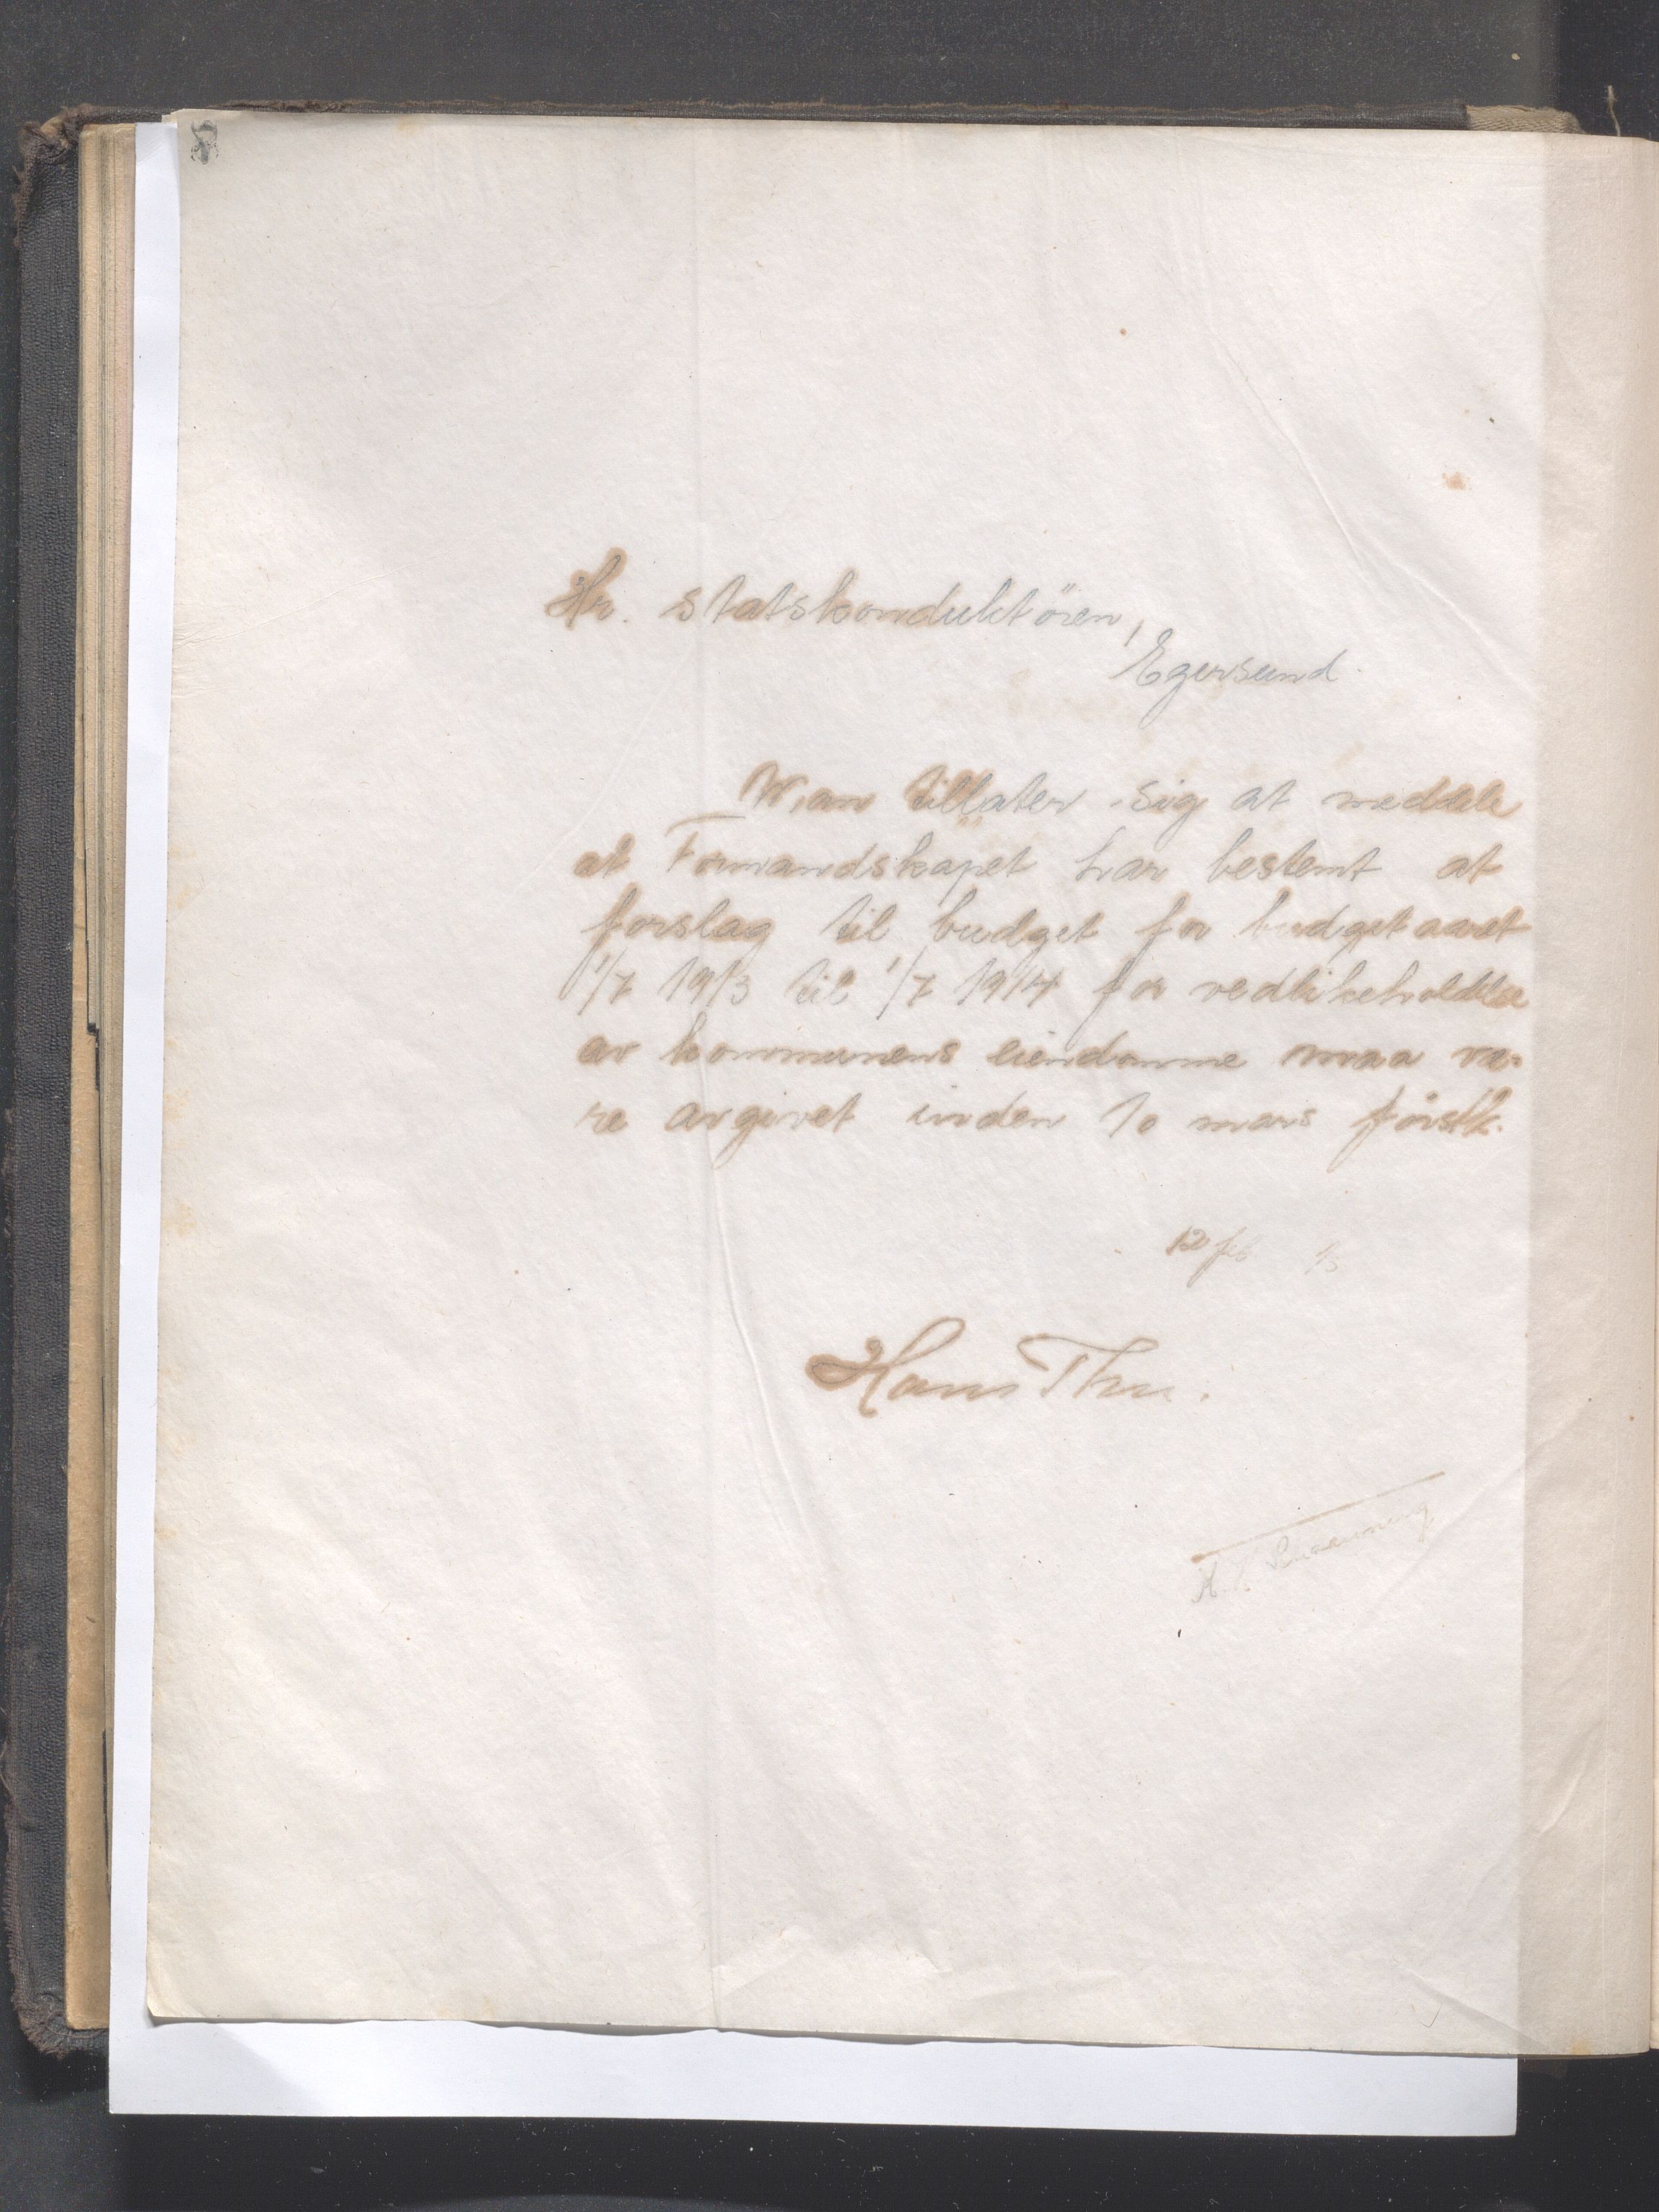 Hr. statskonduktören,
Egersund.
Man tillater sig at meddele
at Formandskapet har bestemt at
forslag til budget for budgetaaret
1/7 1913 til 1/7 1914 for vedlikeholdelse
av kommunens eiendomme maa væ-
re avgivet inden 10 mars förstk.
12 feb 13
Hans Thu.